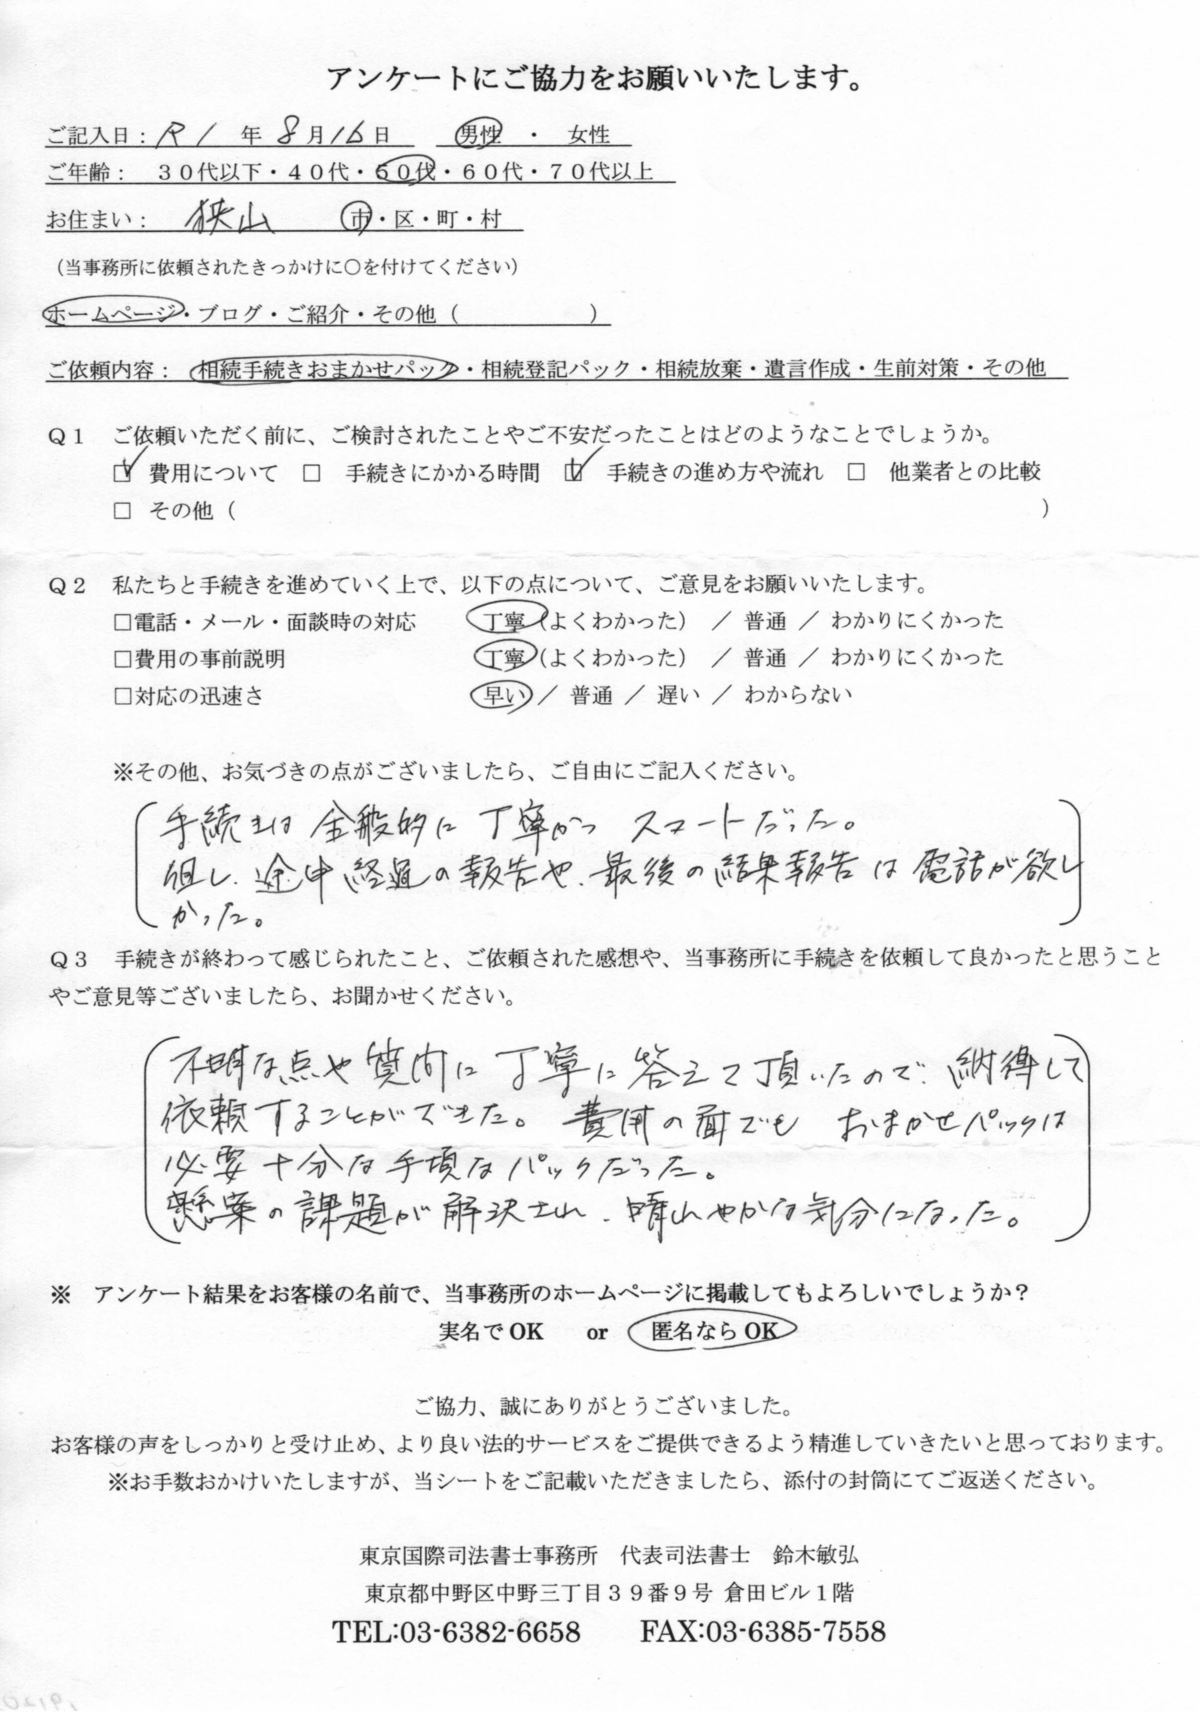 アンケートにご協力をお願いいたします。
ご記入日：R1 年 8月16日 男性 ・ 女性
ご年齢： 30代以下・40代・50代・60代・70代以上
お住まい： 狭山 市・区・町・村
（当事務所に依頼されたきっかけに○を付けてください）
ホームページ・ブログ・ご紹介・その他（ ）
ご依頼内容： 相続手続きおまかせパック・相続登記パック・相続放棄・遺言作成・生前対策・その他
Q1 ご依頼いただく前に、ご検討されたことやご不安だったことはどのようなことでしょうか。
☑ 費用について □ 手続きにかかる時間 ☑ 手続きの進め方や流れ □ 他業者との比較
□ その他（ ）
Q2 私たちと手続きを進めていく上で、以下の点について、ご意見をお願いいたします。
□電話・メール・面談時の対応 丁寧（よくわかった） ／ 普通 ／ わかりにくかった
□費用の事前説明 丁寧（よくわかった） ／ 普通 ／ わかりにくかった
□対応の迅速さ 早い ／ 普通 ／ 遅い ／ わからない
※その他、お気づきの点がございましたら、ご自由にご記入ください。
手続きは全般的に丁寧かつ スマートだった。
但し、途中経過の報告や、最後の結果報告は電話が欲し
かった。
Q3 手続きが終わって感じられたこと、ご依頼された感想や、当事務所に手続きを依頼して良かったと思うこと
やご意見等ございましたら、お聞かせください。
不明な点や質問に丁寧に答えて頂いたので、納得して
依頼することができた。費用の面でも おまかせパックは
必要十分な手頃なパックだった。
懸案の課題が解決され、晴れやかな気分になった。
※ アンケート結果をお客様の名前で、当事務所のホームページに掲載してもよろしいでしょうか？
実名でOK or 匿名ならOK
ご協力、誠にありがとうございました。
お客様の声をしっかりと受け止め、より良い法的サービスをご提供できるよう精進していきたいと思っております。
※お手数おかけいたしますが、当シートをご記載いただきましたら、添付の封筒にてご返送ください。
東京国際司法書士事務所 代表司法書士 鈴木敏弘
東京都中野区中野三丁目39番9号 倉田ビル1階
TEL:03-6382-6658 FAX:03-6385-7558